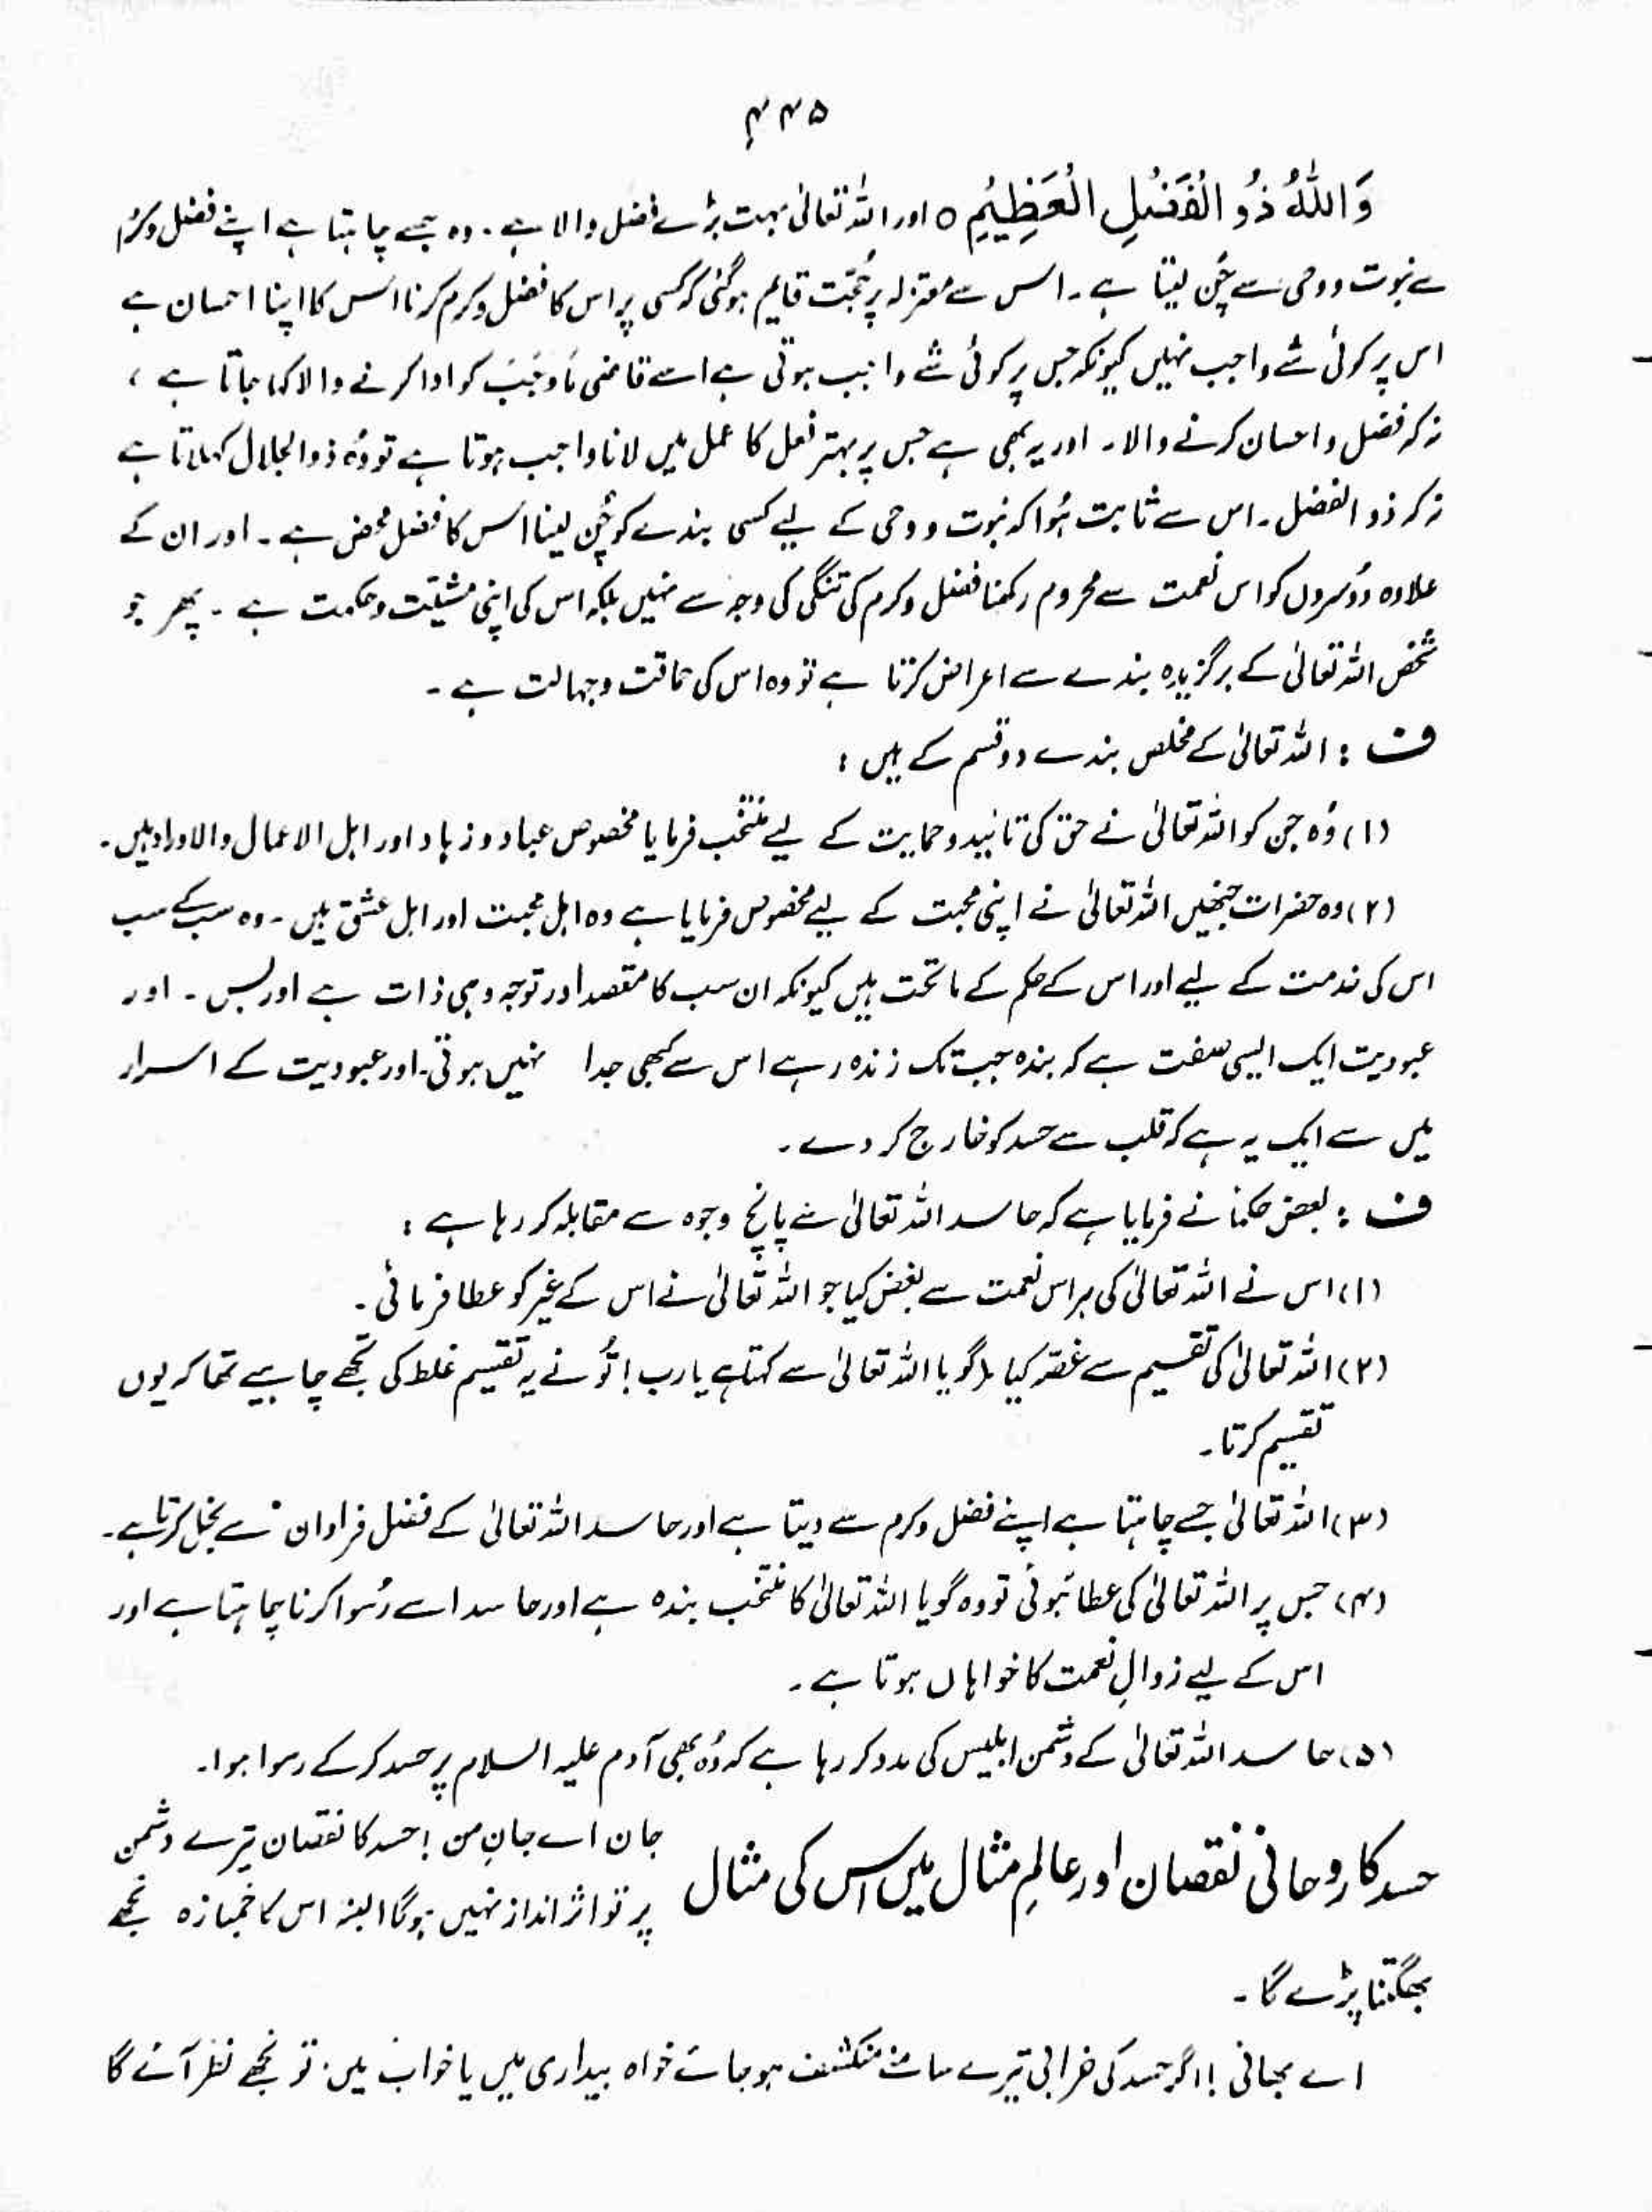 ۴۴۵
وَاللّٰہُ ذُو الْفَضْلِ الْعَظِیْمِ ○ اور اللہ تعالیٰ بہت بڑے فضل والا ہے۔ وہ جسے چاہتا ہے اپنے فضل وکرم
سے نبوت ووحی سے چُن لیتا ہے۔ اس سے معتزلہ پر حُجّت قایم ہوگئی کہ کسی پر اس کا فضل وکرم کرنا اس کا اپنا احسان ہے
اس پر کوئی شے واجب نہیں کیونکہ جس پر کوئی شے واجب ہوتی ہے اسے قاضی مَاوَجَبَ کو ادا کرنے والا کہا جاتا ہے ،
نہ کہ فضل واحسان کرنے والا۔ اور یہ بھی ہے جس پر بہتر فعل کا عمل میں لانا واجب ہوتا ہے تو وُہ ذوالجلال کہلاتا ہے
نہ کہ ذو الفضل۔ اس سے ثابت ہُوا کہ نبوت و وحی کے لیے کسی بندے کو چُن لینا اس کا فضلِ محض ہے۔ اور ان کے
علاوہ دُوسروں کو اس نعمت سے محروم رکھنا فضل وکرم کی تنگی کی وجہ سے نہیں بلکہ اس کی اپنی مشیّت وحکمت ہے ۔ پھر جو
شخص اللہ تعالیٰ کے برگزیدہ بندے سے اعراض کرتا ہے تو وہ اس کی حماقت وجہالت ہے ۔
ف : اللہ تعالیٰ کے مخلص بندے دو قسم کے ہیں :
(۱) وُہ جن کو اللہ تعالیٰ نے حق کی تائید وحمایت کے لیے منتخب فرمایا مخصوص عباد و زہاد اور اہل الاعمال والاوراد ہیں۔
(۲) وہ حضرات جنھیں اللہ تعالیٰ نے اپنی محبت کے لیے مخصوص فرمایا ہے وہ اہل محبت اور اہل عشق ہیں ۔ وہ سب کے سب
اس کی خدمت کے لیے اور اس کے حکم کے ماتحت ہیں کیونکہ ان سب کا مقصد اور توجہ وہی ذات ہے اور بس ۔ اور
عبودیت ایک ایسی صفت ہے کہ بندہ جب تک زندہ رہے اس سے کبھی جدا نہیں ہوتی۔ اور عبودیت کے اسرار
میں سے ایک یہ ہے کہ قلب سے حسد کو خارج کر دے ۔
ف : بعض حکماً نے فرمایا ہے کہ حاسد اللہ تعالیٰ سے پانچ وجوہ سے مقابلہ کر رہا ہے :
(۱) اس نے اللہ تعالیٰ کی ہر اس نعمت سے بغض کیا جو اللہ تعالیٰ نے اس کے غیر کو عطا فرمائی ۔
(۲) اللہ تعالیٰ کی تقسیم سے غصّہ کیا گویا اللہ تعالیٰ سے کہتا ہے یا رب ! تُو نے یہ تقسیم غلط کی تجھے چاہیے تھا کہ یوں
تقسیم کرتا ۔
(۳) اللہ تعالیٰ جسے چاہتا ہے اپنے فضل وکرم سے دیتا ہے اور حاسد اللہ تعالیٰ کے فضل فراوان سے بخل کرتا ہے ۔
(۴) جس پر اللہ تعالیٰ کی عطا ہُوئی تو وہ گویا اللہ تعالیٰ کا منتخب بندہ ہے اور حاسد اسے رُسوا کرنا چاہتا ہے اور
اس کے لیے زوالِ نعمت کا خواہاں ہوتا ہے ۔
(۵) حاسد اللہ تعالیٰ کے دشمن ابلیس کی مدد کر رہا ہے کہ وُہ بھی آدم علیہ السلام پر حسد کر کے رسوا ہوا۔
حسد کا روحانی نقصان اور عالمِ مثال میں اس کی مثال
جان اے جانِ من ! حسد کا نقصان تیرے دشمن
پر تو اثر انداز نہیں ہوگا البتہ اس کا خمیازہ تجھے
بھگتنا پڑے گا ۔
اے بھائی ! اگر حسد کی خرابی تیرے سامنے منکشف ہو جائے خواہ بیداری میں یا خواب میں۔ تو تجھے نظر آئے گا